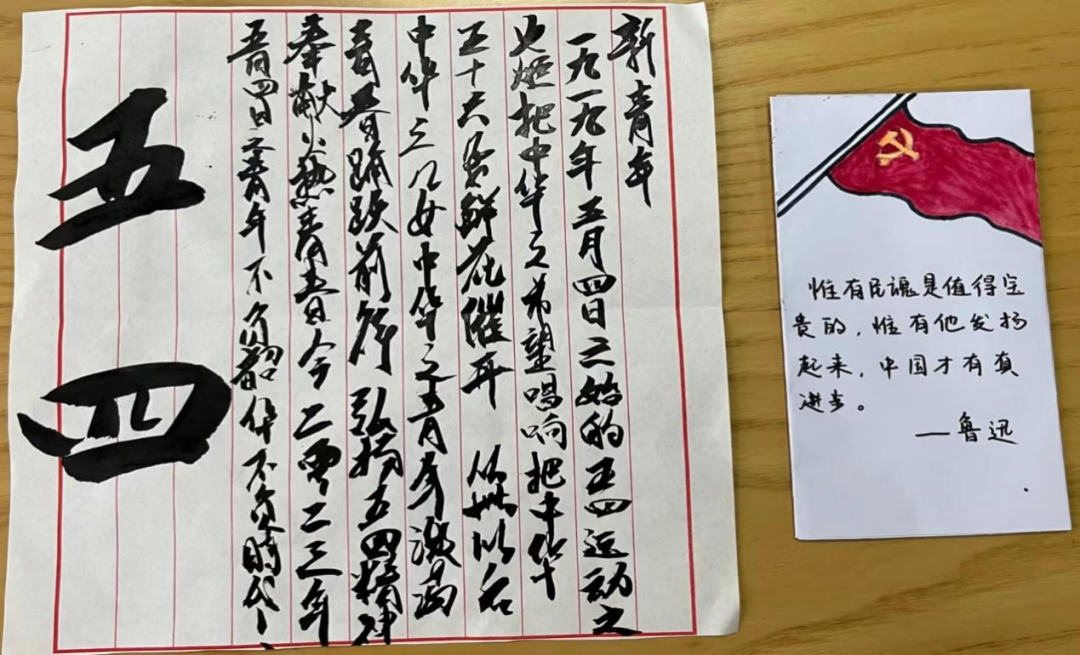 新青年
一九一九年五月四日之始的五四运动之
火炬把中华之希望唱响把中华
五十六朵鲜花催开
中华之儿女中华之青年激
青春踊跃前行弘扬五四精神
奉献火热青春今二零二三年
五月四日之青年不负韶华不负时代
五四
惟有民魂是值得宝
贵的，惟有他发扬
起来，中国才有真
进步。
——鲁迅